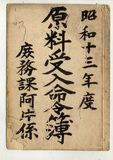 昭和十三年度
原料受入命令簿
庶務課阿片係